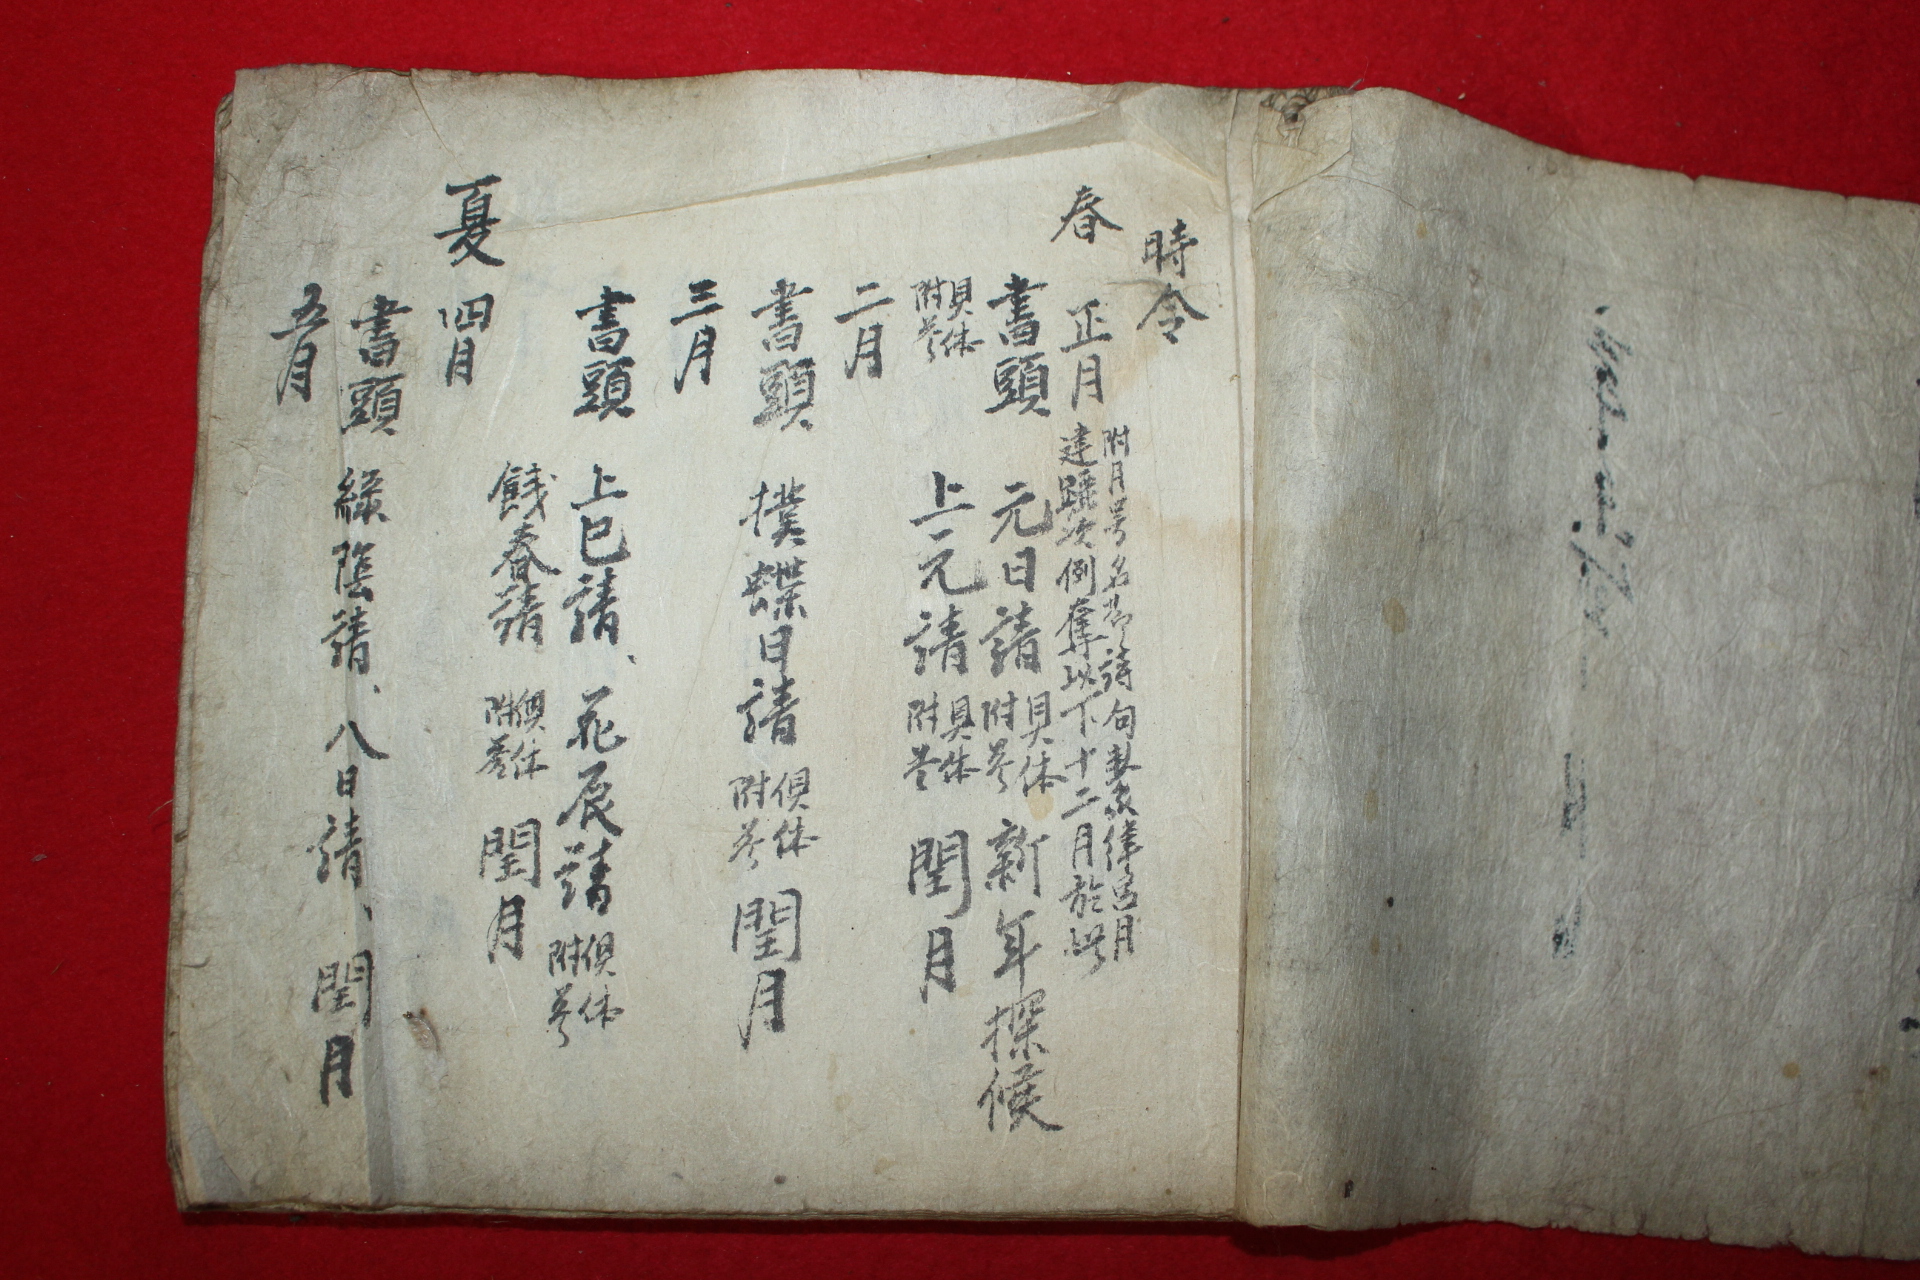 時令
春 正月 附月号名并詩句 律呂月
建 次例 以下十二月於此
書頭 元日請 具休附答 新年探候
具休附答 上元請 具休附答 閏月
二月
書頭 撲蝶日請 俱休附答 閏月
三月
書頭 上巳請、花辰請 俱休附答
餞春請 俱休附答 閏月
夏 四月
書頭 綠陰請、八日請、閏月
五月